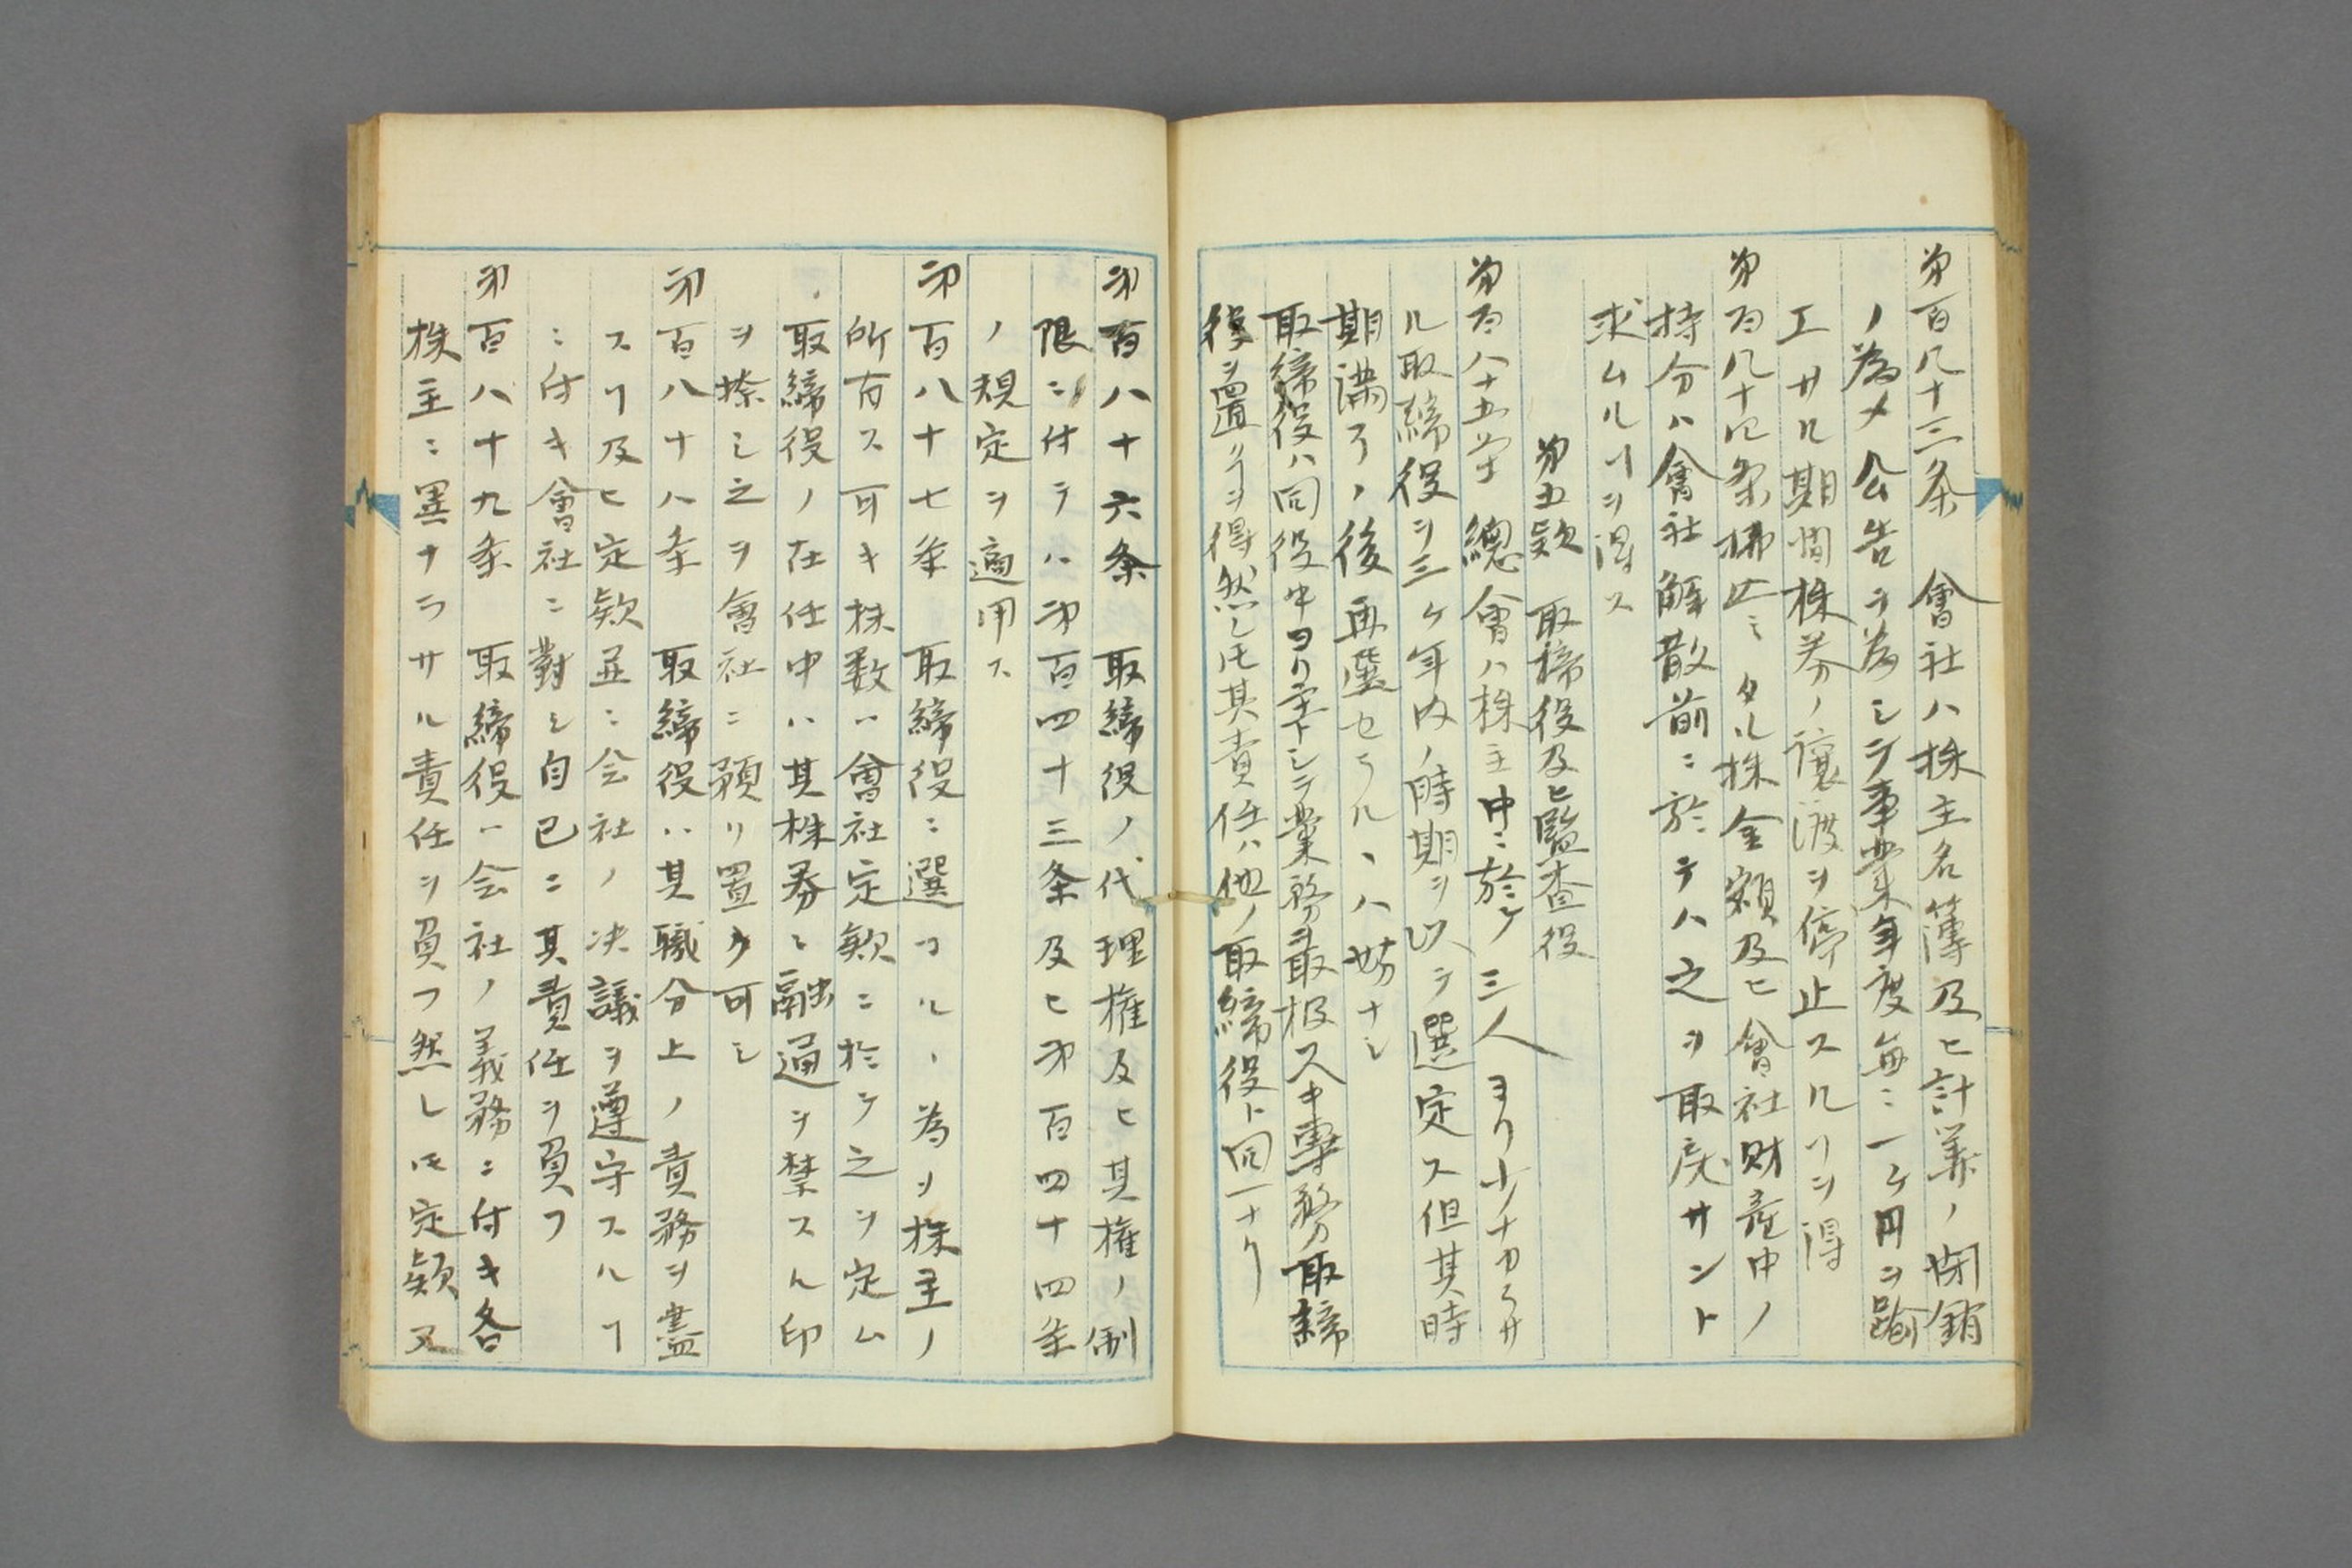 第百八十三条　會社ハ株主名簿及ヒ計算ノ閉鎖
ノ為メ公告ヲ為シテ事業年度毎ニ一ケ月ヲ踰
エサル期間株券ノ讓渡ヲ停止スルヿヲ得
第百八十四条拂込ミタル株金額及ヒ會社財産中ノ
持分ハ會社解散前ニ於テハ之ヲ取戻サント
求ムルヿヲ得ス
第五款　取締役及ヒ監査役
第百八十五条　總會ハ株主中ニ於テ三人ヨリ少ナカラサ
ル取締役ヲ三ケ年内ノ時期ヲ以テ選定ス但其時
期満了ノ後再選セラルヽハ妨ナシ
取締役ハ同役中ヨリ主トシテ業務ヲ取扱スキ專務取締
役ヲ置クヿヲ得然レ𪜈其責任ハ他ノ取締役ト同一ナリ
第百八十六条　取締役ノ代理權及ヒ其權ノ制
限ニ付テハ第百四十三条及ヒ第百四十四条
ノ規定ヲ適用ス
第百八十七条　取締役ニ選ハルヽ為メ株主ノ
所有ス可キ株数ハ會社定款ニ於テ之ヲ定ム
取締役ノ在任中ハ其株券ニ融通ヲ禁スル印
ヲ捺シ之ヲ會社ニ預リ置ク可シ
第百八十八条　取締役ハ其職分上ノ責務ヲ盡
スヿ及ヒ定款並ニ会社ノ决議ヲ遵守スルヿ
ニ付キ會社ニ對シ自己ニ其責任ヲ負フ
第百八十九条　取締役ハ会社ノ義務ニ付キ各
株主ニ異ナラサル責任ヲ負フ然レ𪜈定款又